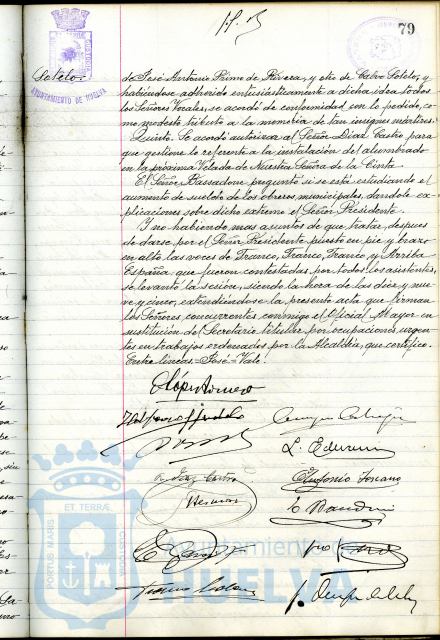 79
Sotelo.
AYUNTAMIENTO DE HUELVA
de José Antonio Primo de Rivera, y otro de Calvo Sotelo, y
habiéndose adherido entusiásticamente a dicha idea todos
los Señores Vocales, se acordó de conformidad con lo pedido, co-
mo modesto tributo a la memoria de tan insignes mártires.
Quinto. Se acordó autorizar al Señor Díaz Castro para
que gestione lo referente a la instalación del alumbrado
en la próxima Velada de Nuestra Señora de la Cinta.
El Señor Bassadone preguntó si se está estudiando el
aumento de sueldo de los obreros municipales, dándole ex-
plicaciones sobre dicho extremo el Señor Presidente.
Y no habiendo mas asuntos de que tratar, despues
de darse por el Señor Presidente puesto en pié y brazo
en alto, las voces de Franco, Franco, Franco y Arriba
España, que fueron contestadas por todos los asistentes,
se levantó la sesión, siendo la hora de las diez y nue-
ve y cinco, extendiéndose la presente acta que firman
los Señores concurrentes, conmigo el Oficial Mayor en
sustitución del Secretario titular por ocupaciones urgen-
tes en trabajos ordenados por la Alcaldía, que certifico.
Entre líneas = José = Vale.
Díaz Castro
PORTUS MARIS ET TERRAE CUSTODIA
Ayuntamiento de
HUELVA